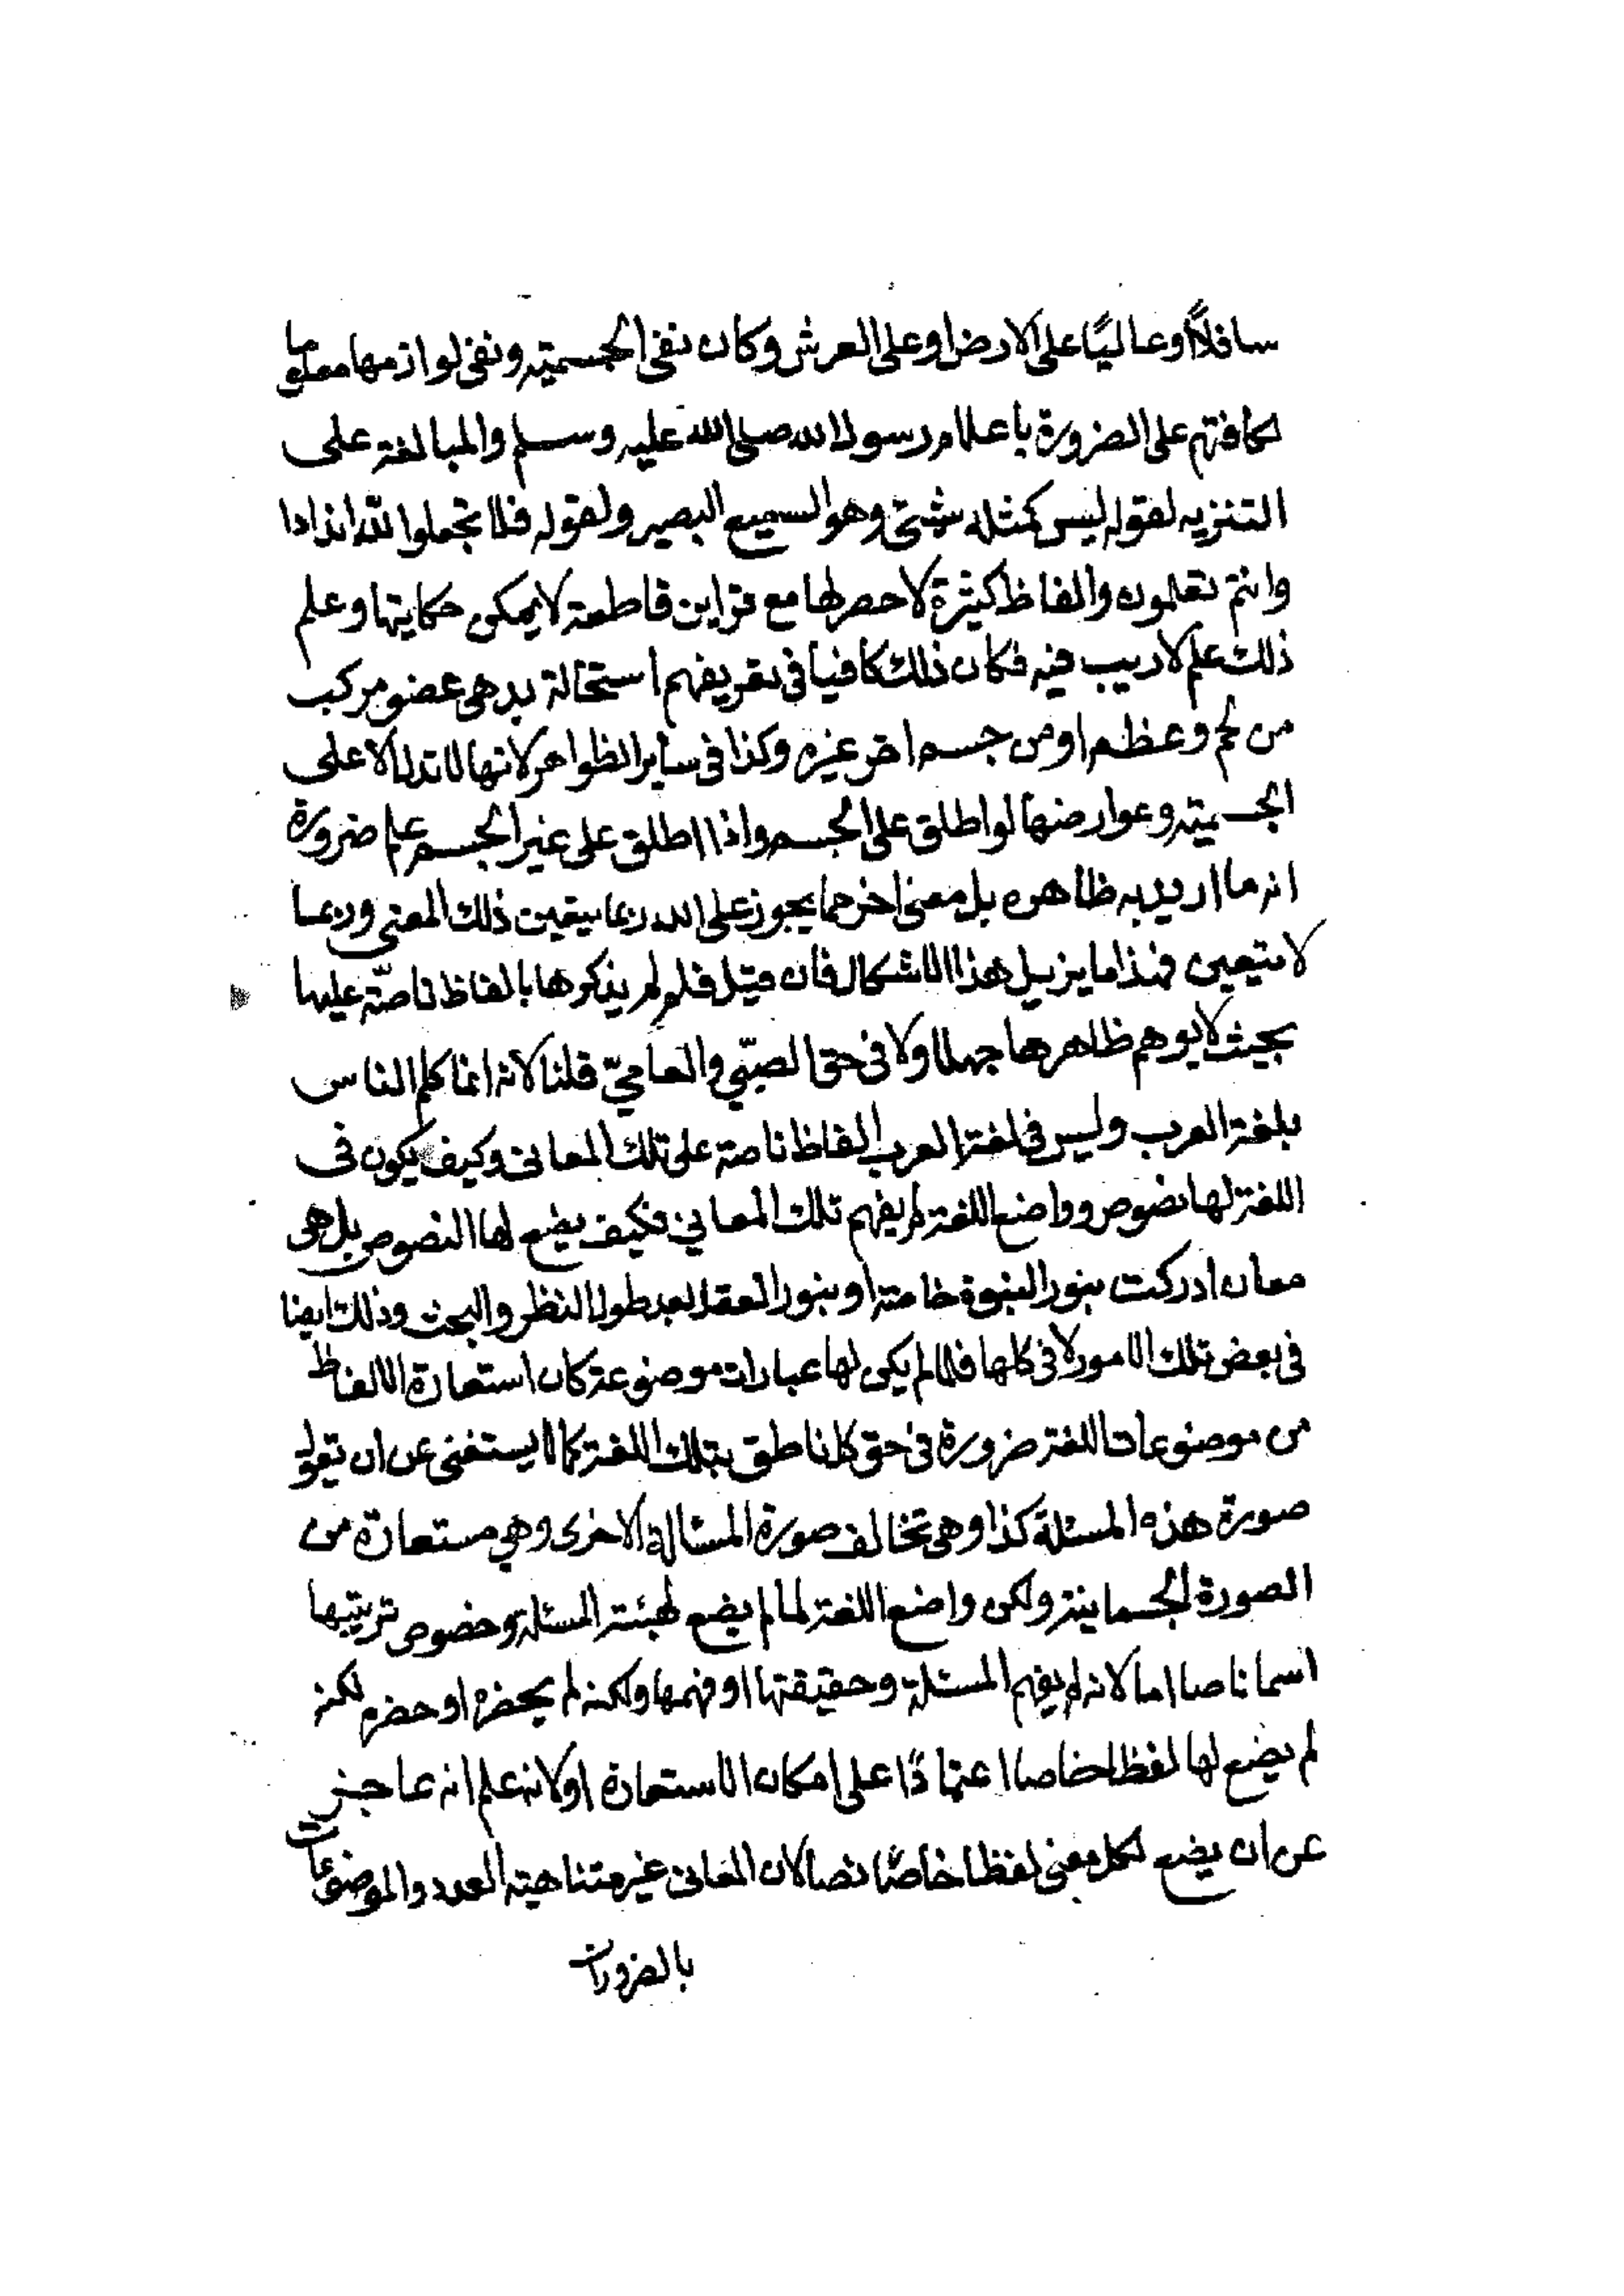 سافلاً وعاليًا على الارض او على العرش وكان نفى الجسمية ونفى لوازمها معلوما
لكافتهم على الضرورة باعلام رسول الله صلى الله عليه وسلم والمبالغة على
التنزيه لقوله ليس كمثله شئ وهو السميع البصير ولقوله فلا تجعلوا لله اندادا
وانتم تعلمون والفاظ كثيرة لا حصر لها مع قراين قاطعة لا يمكن حكايتها وعلم
ذلك علم لا ريب فيه فكان ذلك كافيا فى تعريفهم استحالة يد هى عضو مركب
من لحم وعظم او من جسم اخر غيره وكذا فى ساير الظواهر لانها لا تدل الا على
الجسمية وعوارضها لو اطلق على الجسم واذا اطلق على غير الجسم علم ضرورة
انه ما اريد به ظاهره بل معنى اخر مما يجوز على الله ربما يتعين ذلك المعنى وربما
لا يتعين فهذا ما يزيل هذا الاشكال فان قيل فلم لم يذكرها بالفاظ ناصّة عليها
بحيث لا يوهم ظاهرها جهلا ولا فى حق الصبّي والعاميّ قلنا لانه انما كلم الناس
بلغة العرب وليس فى لغة العرب الفاظ ناصة على تلك المعانى وكيف يكون فى
اللغة لها نصوص وواضع اللغة لم يفهم تلك المعاني فكيف يضع لها النصوص بل هى
معان ادركت بنور النبوة خاصة او بنور العقل بعد طول النظر والبحث وذلك ايضا
فى بعض تلك الامور لا فى كلها فلما لم يكن لها عبارات موضوعة كان استعارة الالفاظ
من موضوعات اللغة ضرورة فى حق كل ناطق بتلك اللغة كما لا يستغنى عن ان يقول
صورة هذه المسئلة كذا وهى تخالف صورة المسئالة الاخرى وهي مستعارة من
الصورة الجسمانية ولكن واضع اللغة لما لم يضع لهيئة المسئلة وخصوص ترتيبها
اسما ناصا اما لانه لم يفهم المسئلة وحقيقتها او فهمها ولكنه لم يحضره او حضره لكنه
لم يضع لها لفظا خاصا اعتمادًا على امكان الاستعارة او لانه علم انه عاجز
عن ان يضع لكل معنى لفظا خاصًا نصا لان المعانى غير متناهية العدد والموضوعات
بالضرورات